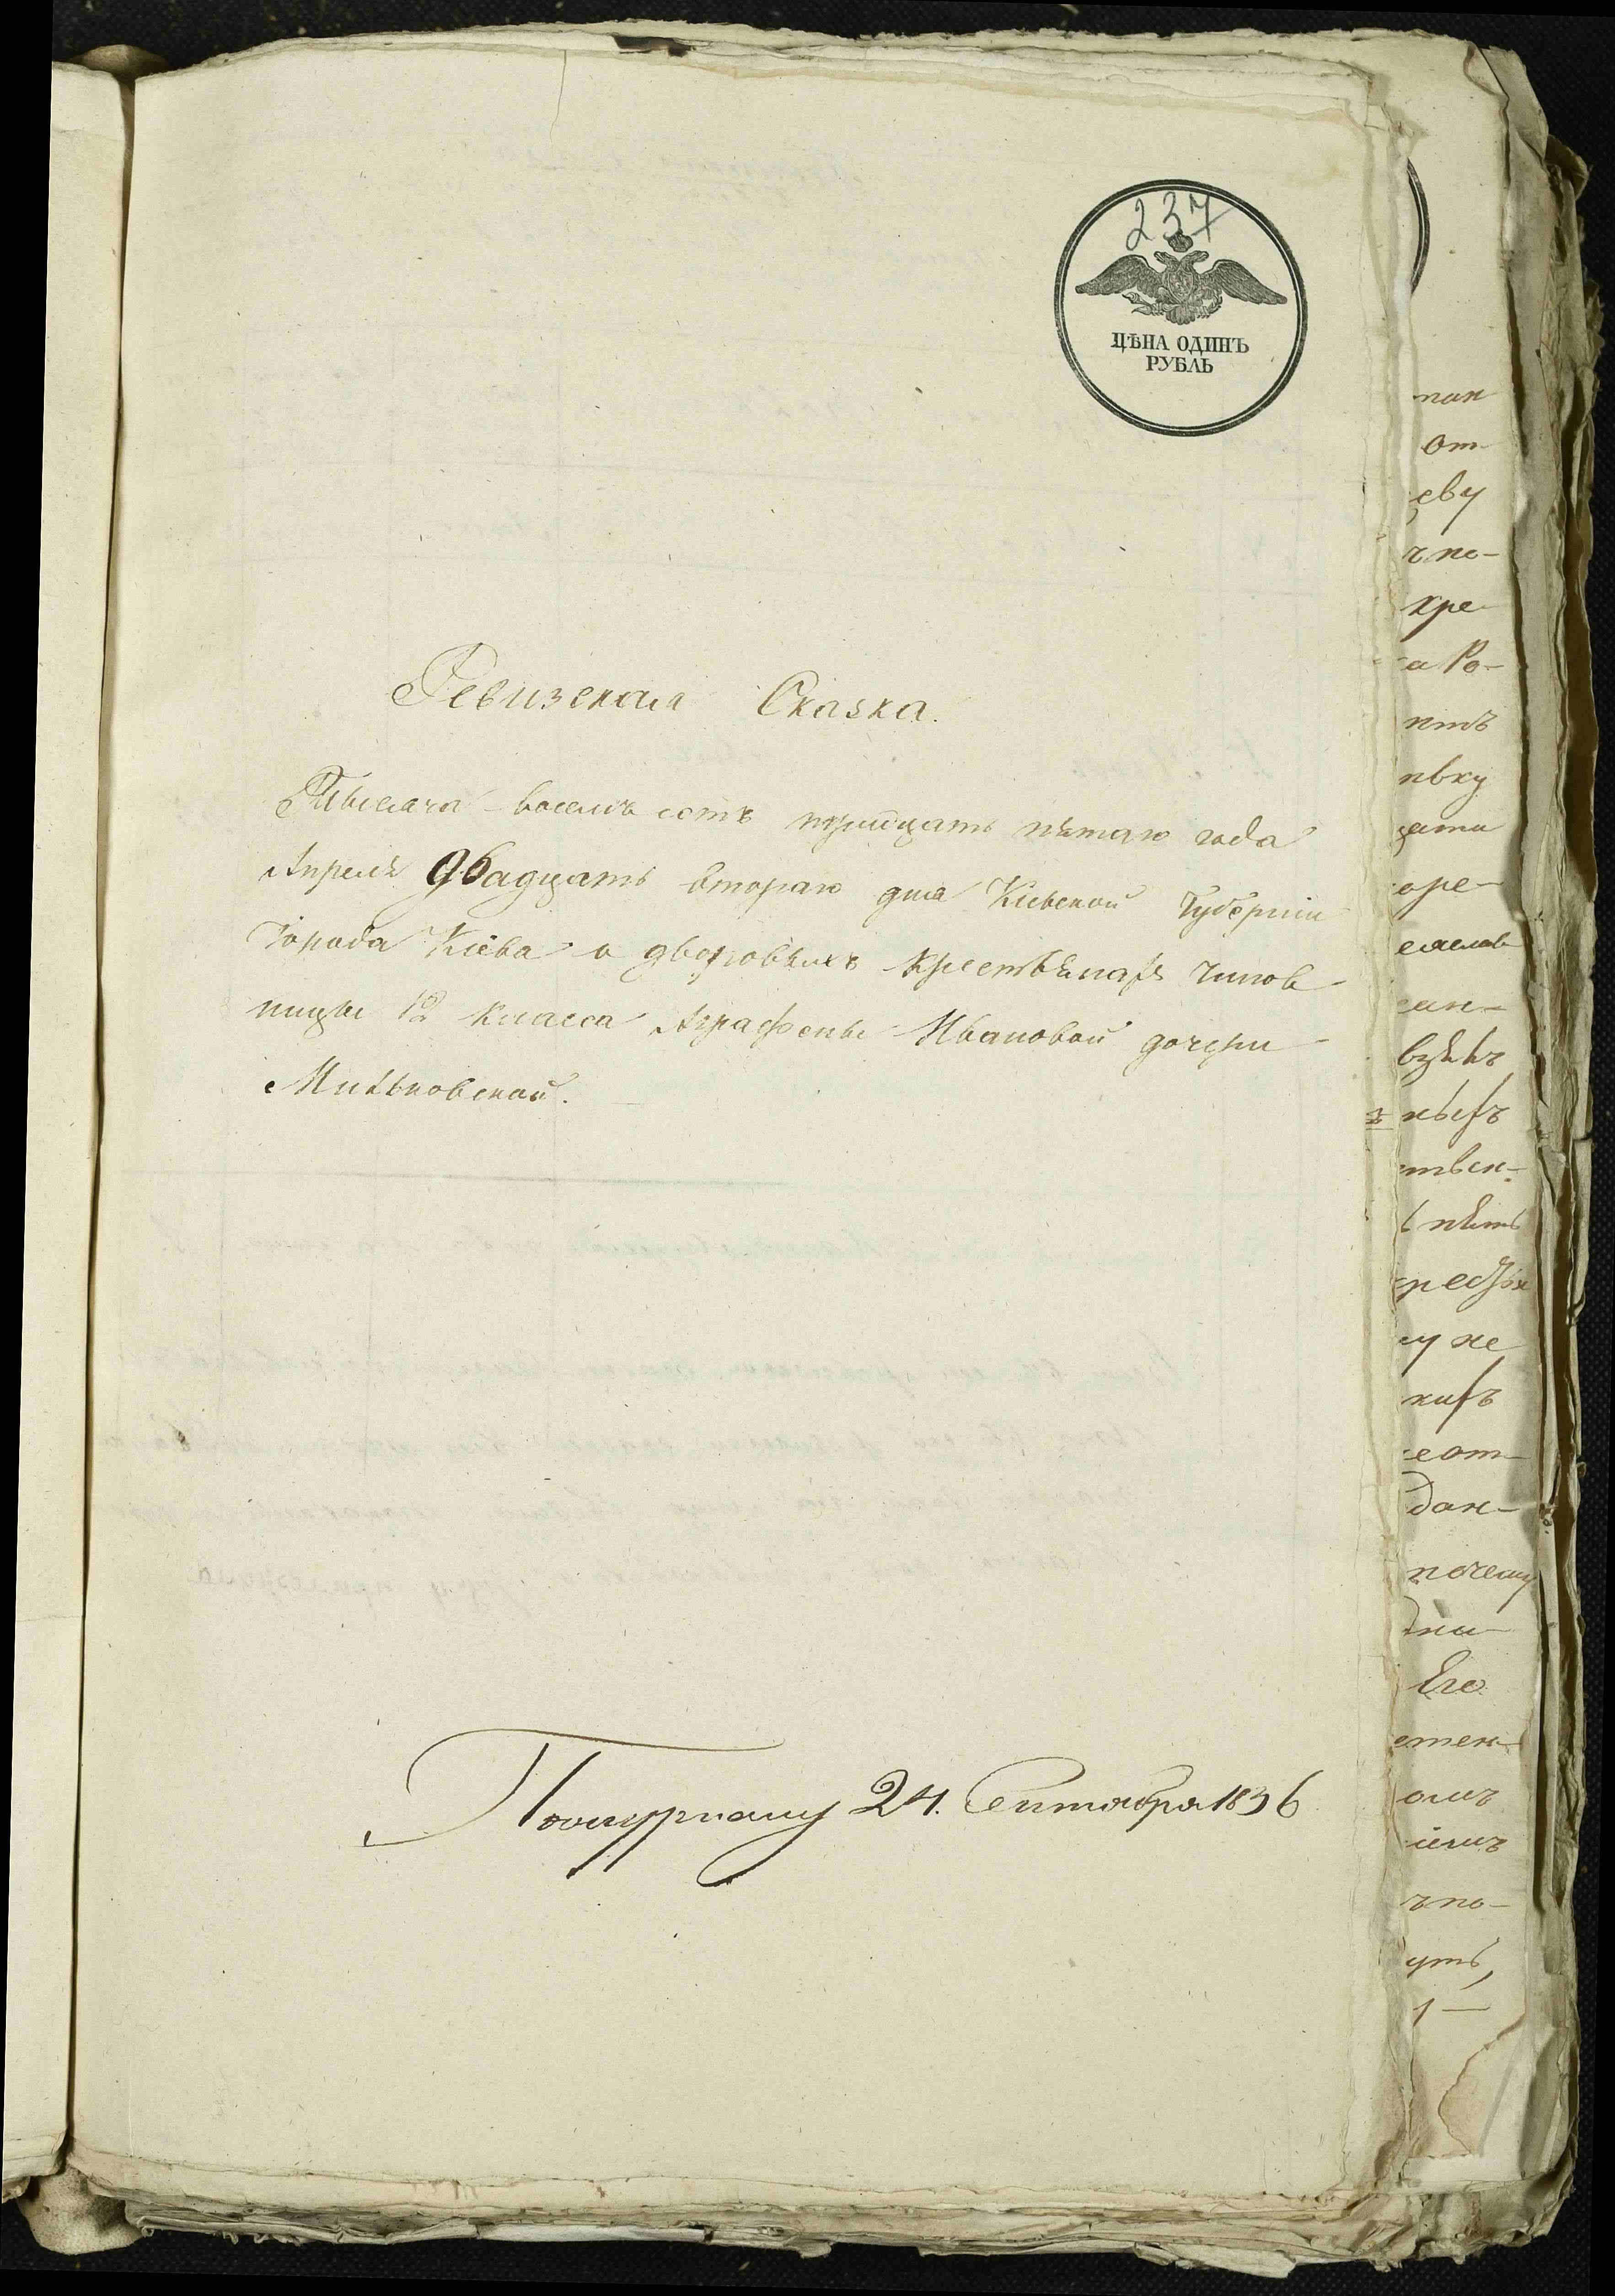 237
ЦѢНА ОДИНЪ
РУБЛЬ
Ревизская Сказка.
Тысяча восемь сотъ тридцать пятаго года
Апреля двадцать втораго дня Кіевской Губерніи
Города Кіева о дворовыхъ крестьянахъ чинов
ницы 12 класса Аграфены Ивановой дочери
Миньковской.
24. Сентября 1836
пан
от
еву
ъ по-
кре
а Ро-
итъ
ивку
щати
оре-
ан-
ныхъ
твен-
ь пять
му не
кихъ
еот
дан-
почему
дни
Его
стен-
омъ
іемъ
ъ по-
уть,